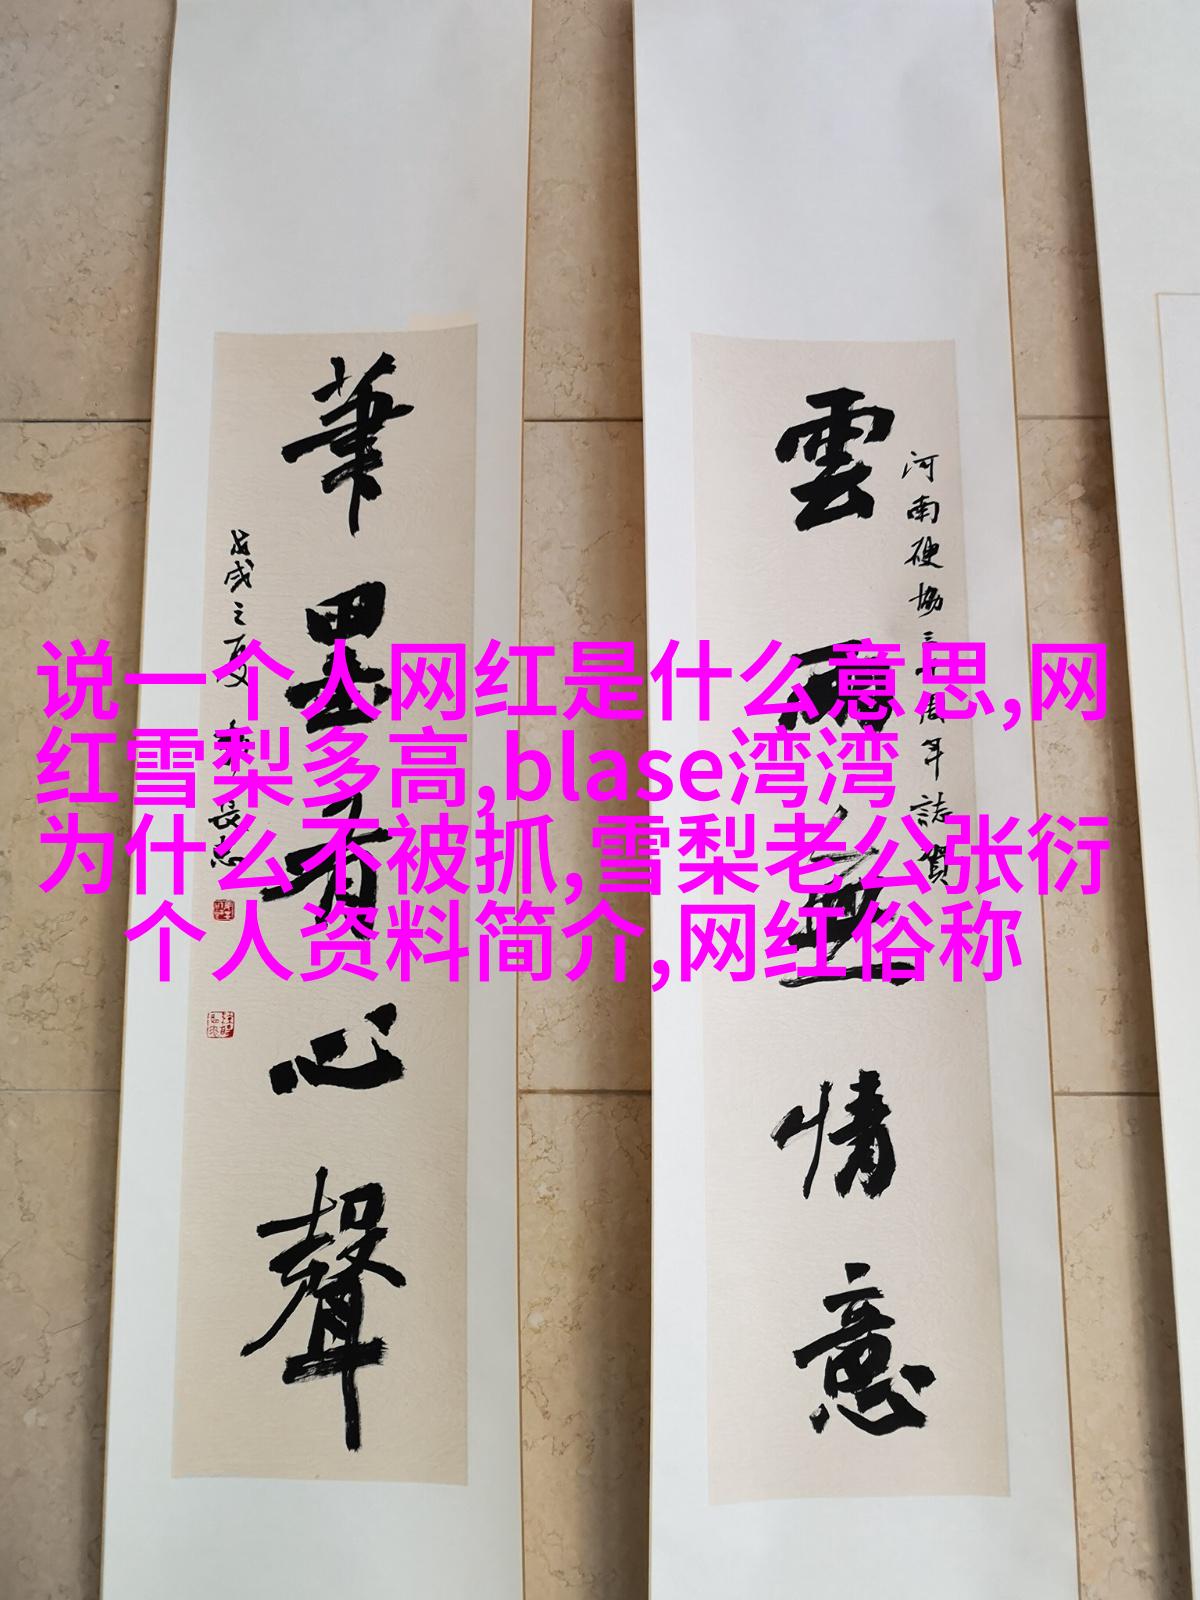 说一个人网红是什么意思,网
红雪梨多高,blase湾湾
为什么不被抓,雪梨老公张衍
个人资料简介,网红俗称
雲雨無情意
河南硬協三周年誌賀
筆墨有心聲
戊戌之夏